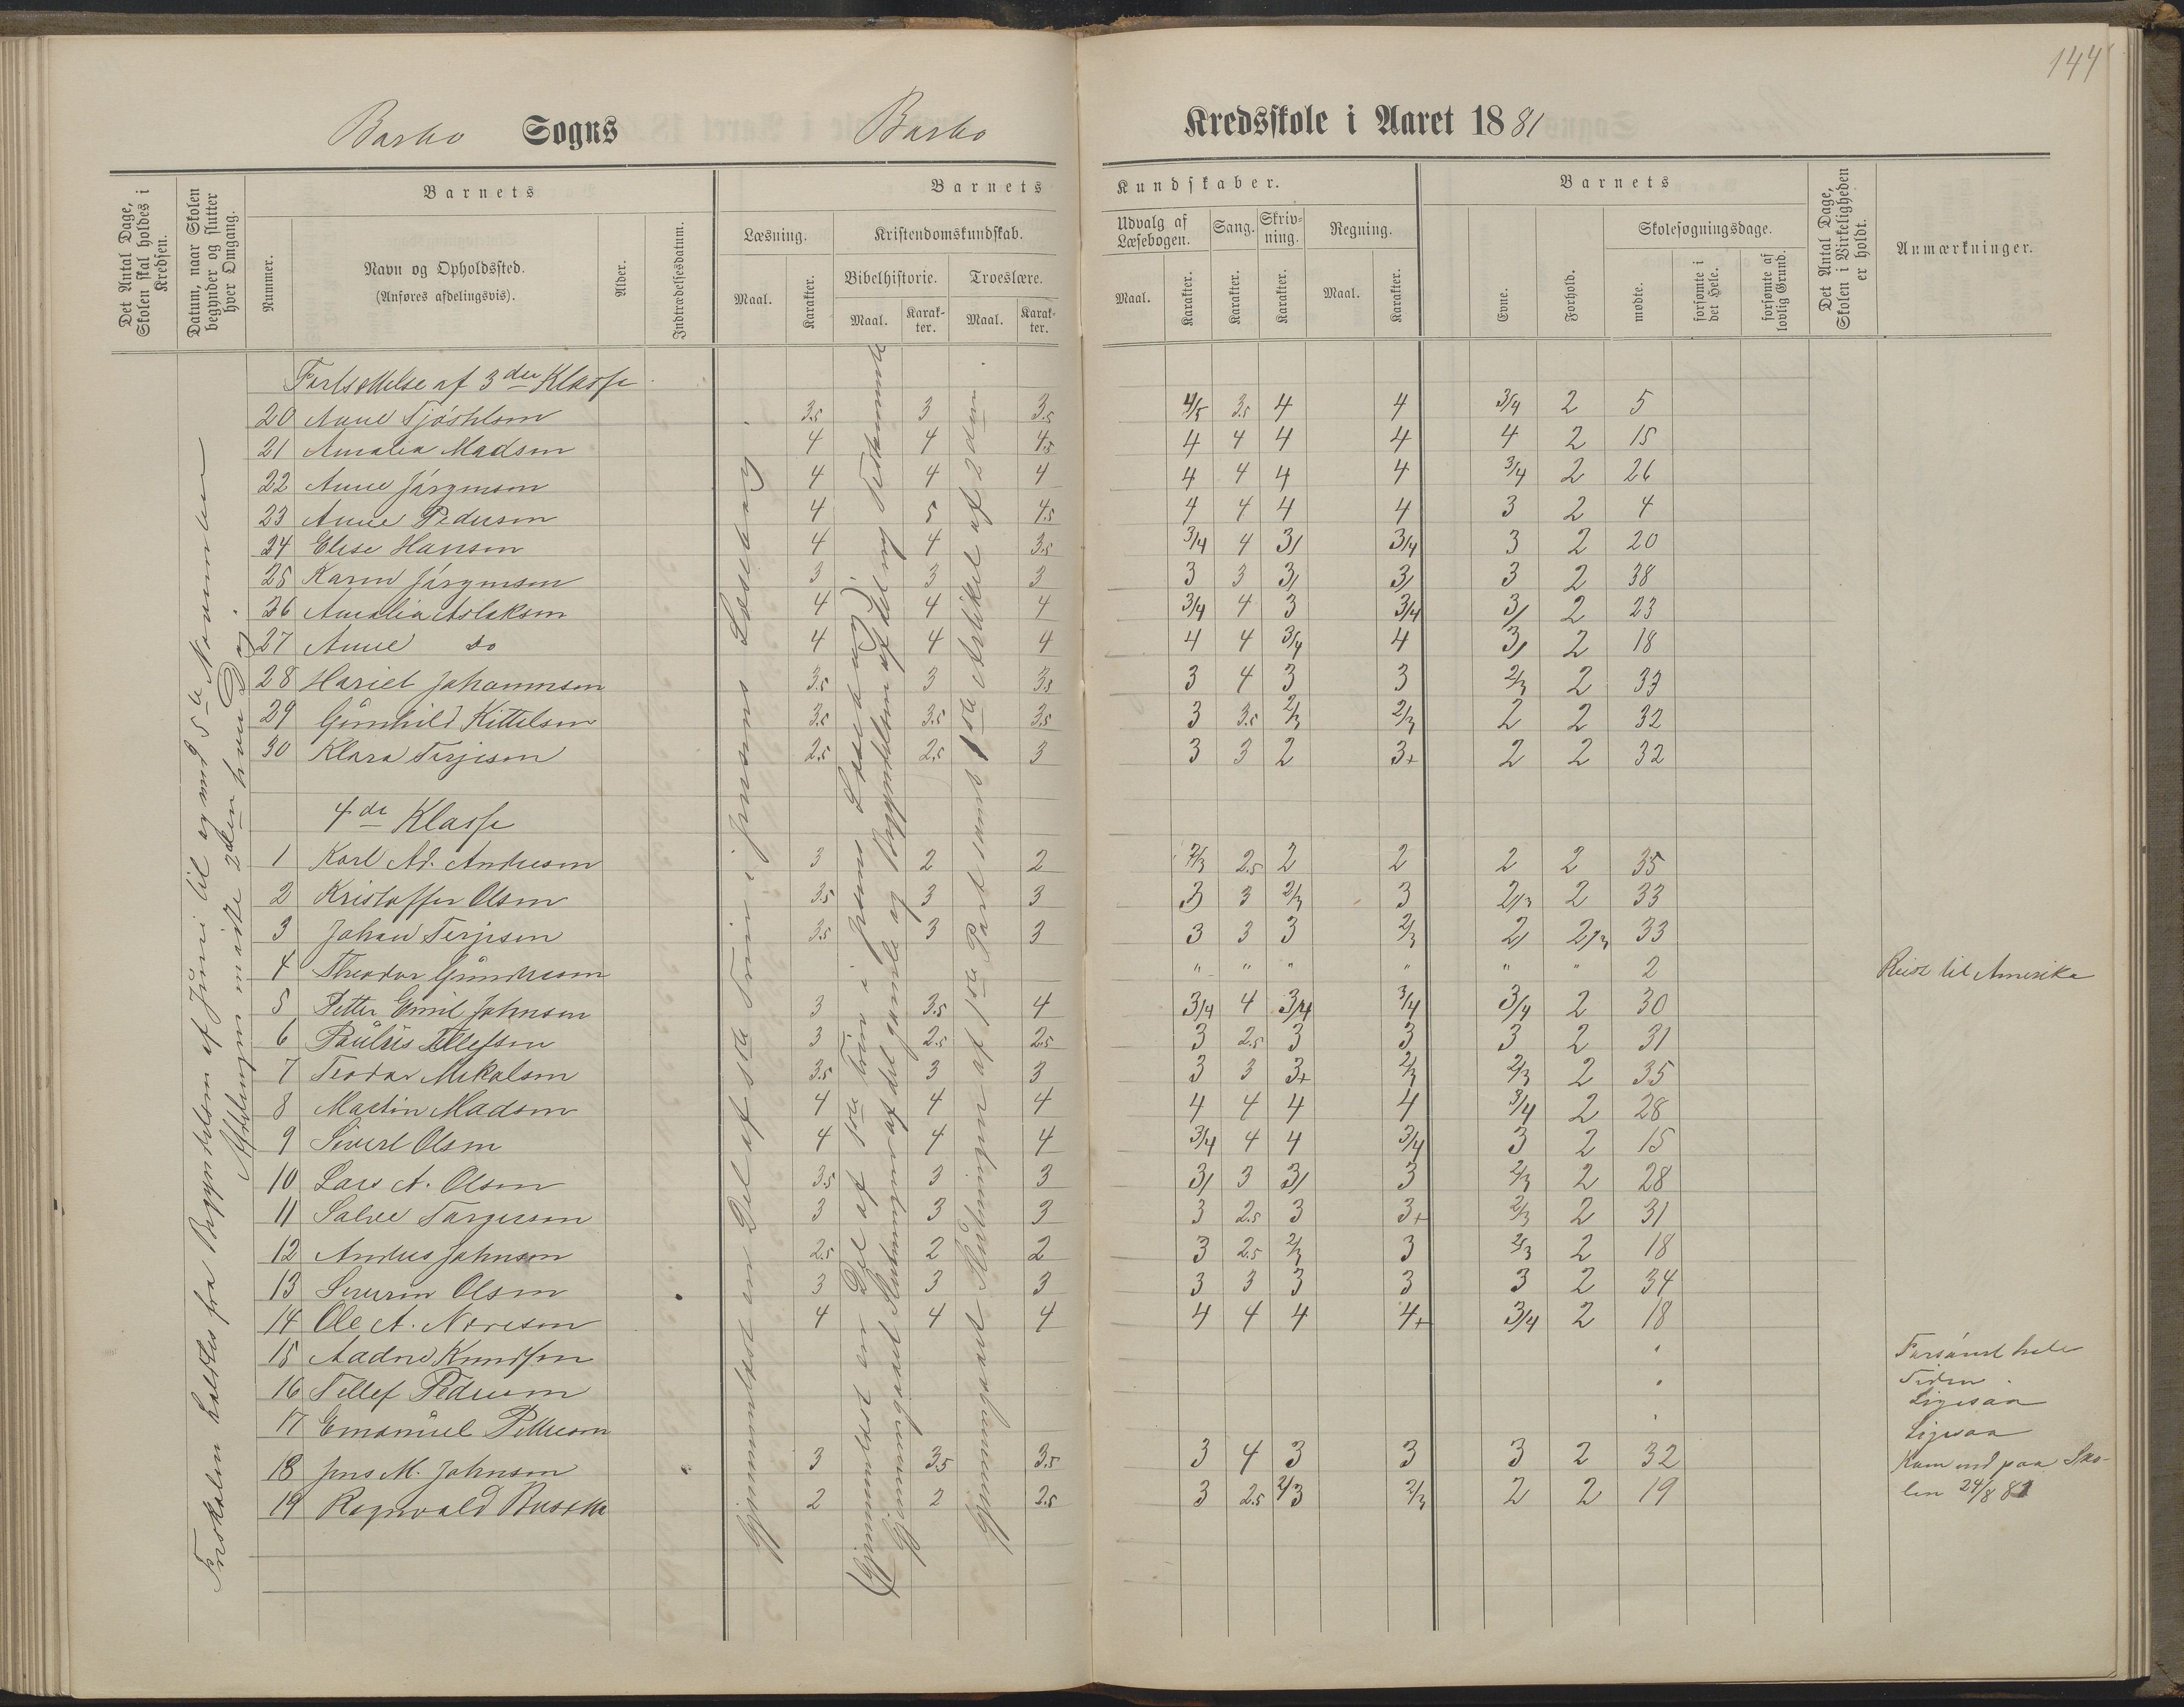 144
Barbo Sogns Barbo Kredsskole i Aaret 1881
Det Antal Dage, Skolen skal holdes i Kredsen.
Datum, naar Skolen begynder og slutter hver Omgang.
Barnets
Nummer.
Navn og Opholdssted.
(Anføres afdelingsvis).
Alder.
Indtrædelsesdatum.
Barnets Kundskaber.
Læsning.
Maal.
Karakter.
Kristendomskundskab.
Bibelhistorie.
Maal.
Karakter.
Troeslære.
Maal.
Karakter.
Udvalg af Læsebogen.
Maal.
Karakter.
Sang.
Karakter.
Skrivning.
Karakter.
Regning.
Maal.
Karakter.
Barnets
Evne.
Forhold.
Skolesøgningsdage.
mødte.
forsømte i det Hele.
forsømte af lovlig Grund.
Det Antal Dage, Skolen i Virkeligheden er holdt.
Anmærkninger.
Fortsættelse af 3die Klasse
20 3.5 3 3.5 4/5 3.5 4 4 3/4 2 5
21 Amalia Madsen 4 4 4.5 4 4 4 4 4 2 15
22 Anne Jörgensen 4 4 4 4 4 4 4 3/4 2 26
23 Anne Pedersen 4 5 4.5 4 4 4 4 3 2 4
24 Elise Hansen 4 4 3.5 3/4 4 3/ 3/4 3 2 20
25 Karen Jörgensen 3 3 3 3 3 3/ 3/ 3 2 38
26 Amalia Aslaksen 4 4 4 3/4 4 3 3/4 3/ 2 23
27 Anne do 4 4 4 4 4 3/4 4 3/ 2 18
28 Hariet Johannesen 3.5 3 3.5 3 4 3 3 2/3 2 33
29 Gunhild Kittelsen 3.5 3.5 3.5 3 3.5 2/3 2/3 2 2 32
30 Klara Terjesen 2.5 2.5 3 3 3 2 3+ 2 2 32
4de Klasse
1 Karl Ad. Andersen 3 2 2 2/3 2.5 2 2 2 2 35
2 Kristoffer Olsen 3.5 3 3 3 3 2/3 3 2/3 2 33
3 Johan Terjesen 3.5 3 3 3 3 3 2/3 2/ 2/3 33
4 Theodor Gundersen " " " " " " 2 Reist til Amerika
5 Petter Emil Johnsen 3 3.5 4 3/4 4 3/4 3/4 3/4 2 30
6 Paulus Tellefsen 3 2.5 2.5 3 2.5 3 3 3 2 31
7 Teodor Mikalsen 3.5 3 3 3 3 3+ 2/3 2/3 2 35
8 Martin Madsen 4 4 4 4 4 4 4 3/4 2 28
9 Sivert Olsen 4 4 4 3/4 4 4 3/4 3 2 15
10 Lars A. Olsen 3.5 3 3 3/ 3 3/ 3 2/3 2 28
11 Salve Targesen 3 3 3 3 2.5 3 3+ 2/3 2 31
12 Anders Johnsen 2.5 2 2 3 2.5 2/3 3 2/3 2 18
13 Severin Olsen 3 3 3 3 3 3 3 3 2 34
14 Ole A. Noresen 4 4 4 4 4 4 4+ 3/4 2 18
15 Aadne Knudsen " Forsömt hele
16 Tellef Pedersen " Tiden.
Ligesaa
17 Emanuel Pettersen " Ligesaa
18 Jens M. Johnsen 3 3.5 3.5 3 4 3 3 3 2 32 Kom ind paa Sko-
19 Ragnvald 2 2 2.5 3 2.5 2/3 2/3 2 2 19 len 24/8 81
Friskolen holdtes fra Begyndelsen af Juni til og med 5te November
Afdelingen mødte 2den hver Dag.
Gjennemlæst en Del af 3die Trin i Jensens Læsebog.
(Gjennemlæst en Del af 1ste Trin i Jensens Læsebog)
Gjennemgaaet Slutningen af det gamle og Begyndelsen af det ny Testamente
Gjennemgaaet Slutningen af 1ste Part samt 1ste Artikel af 2den.